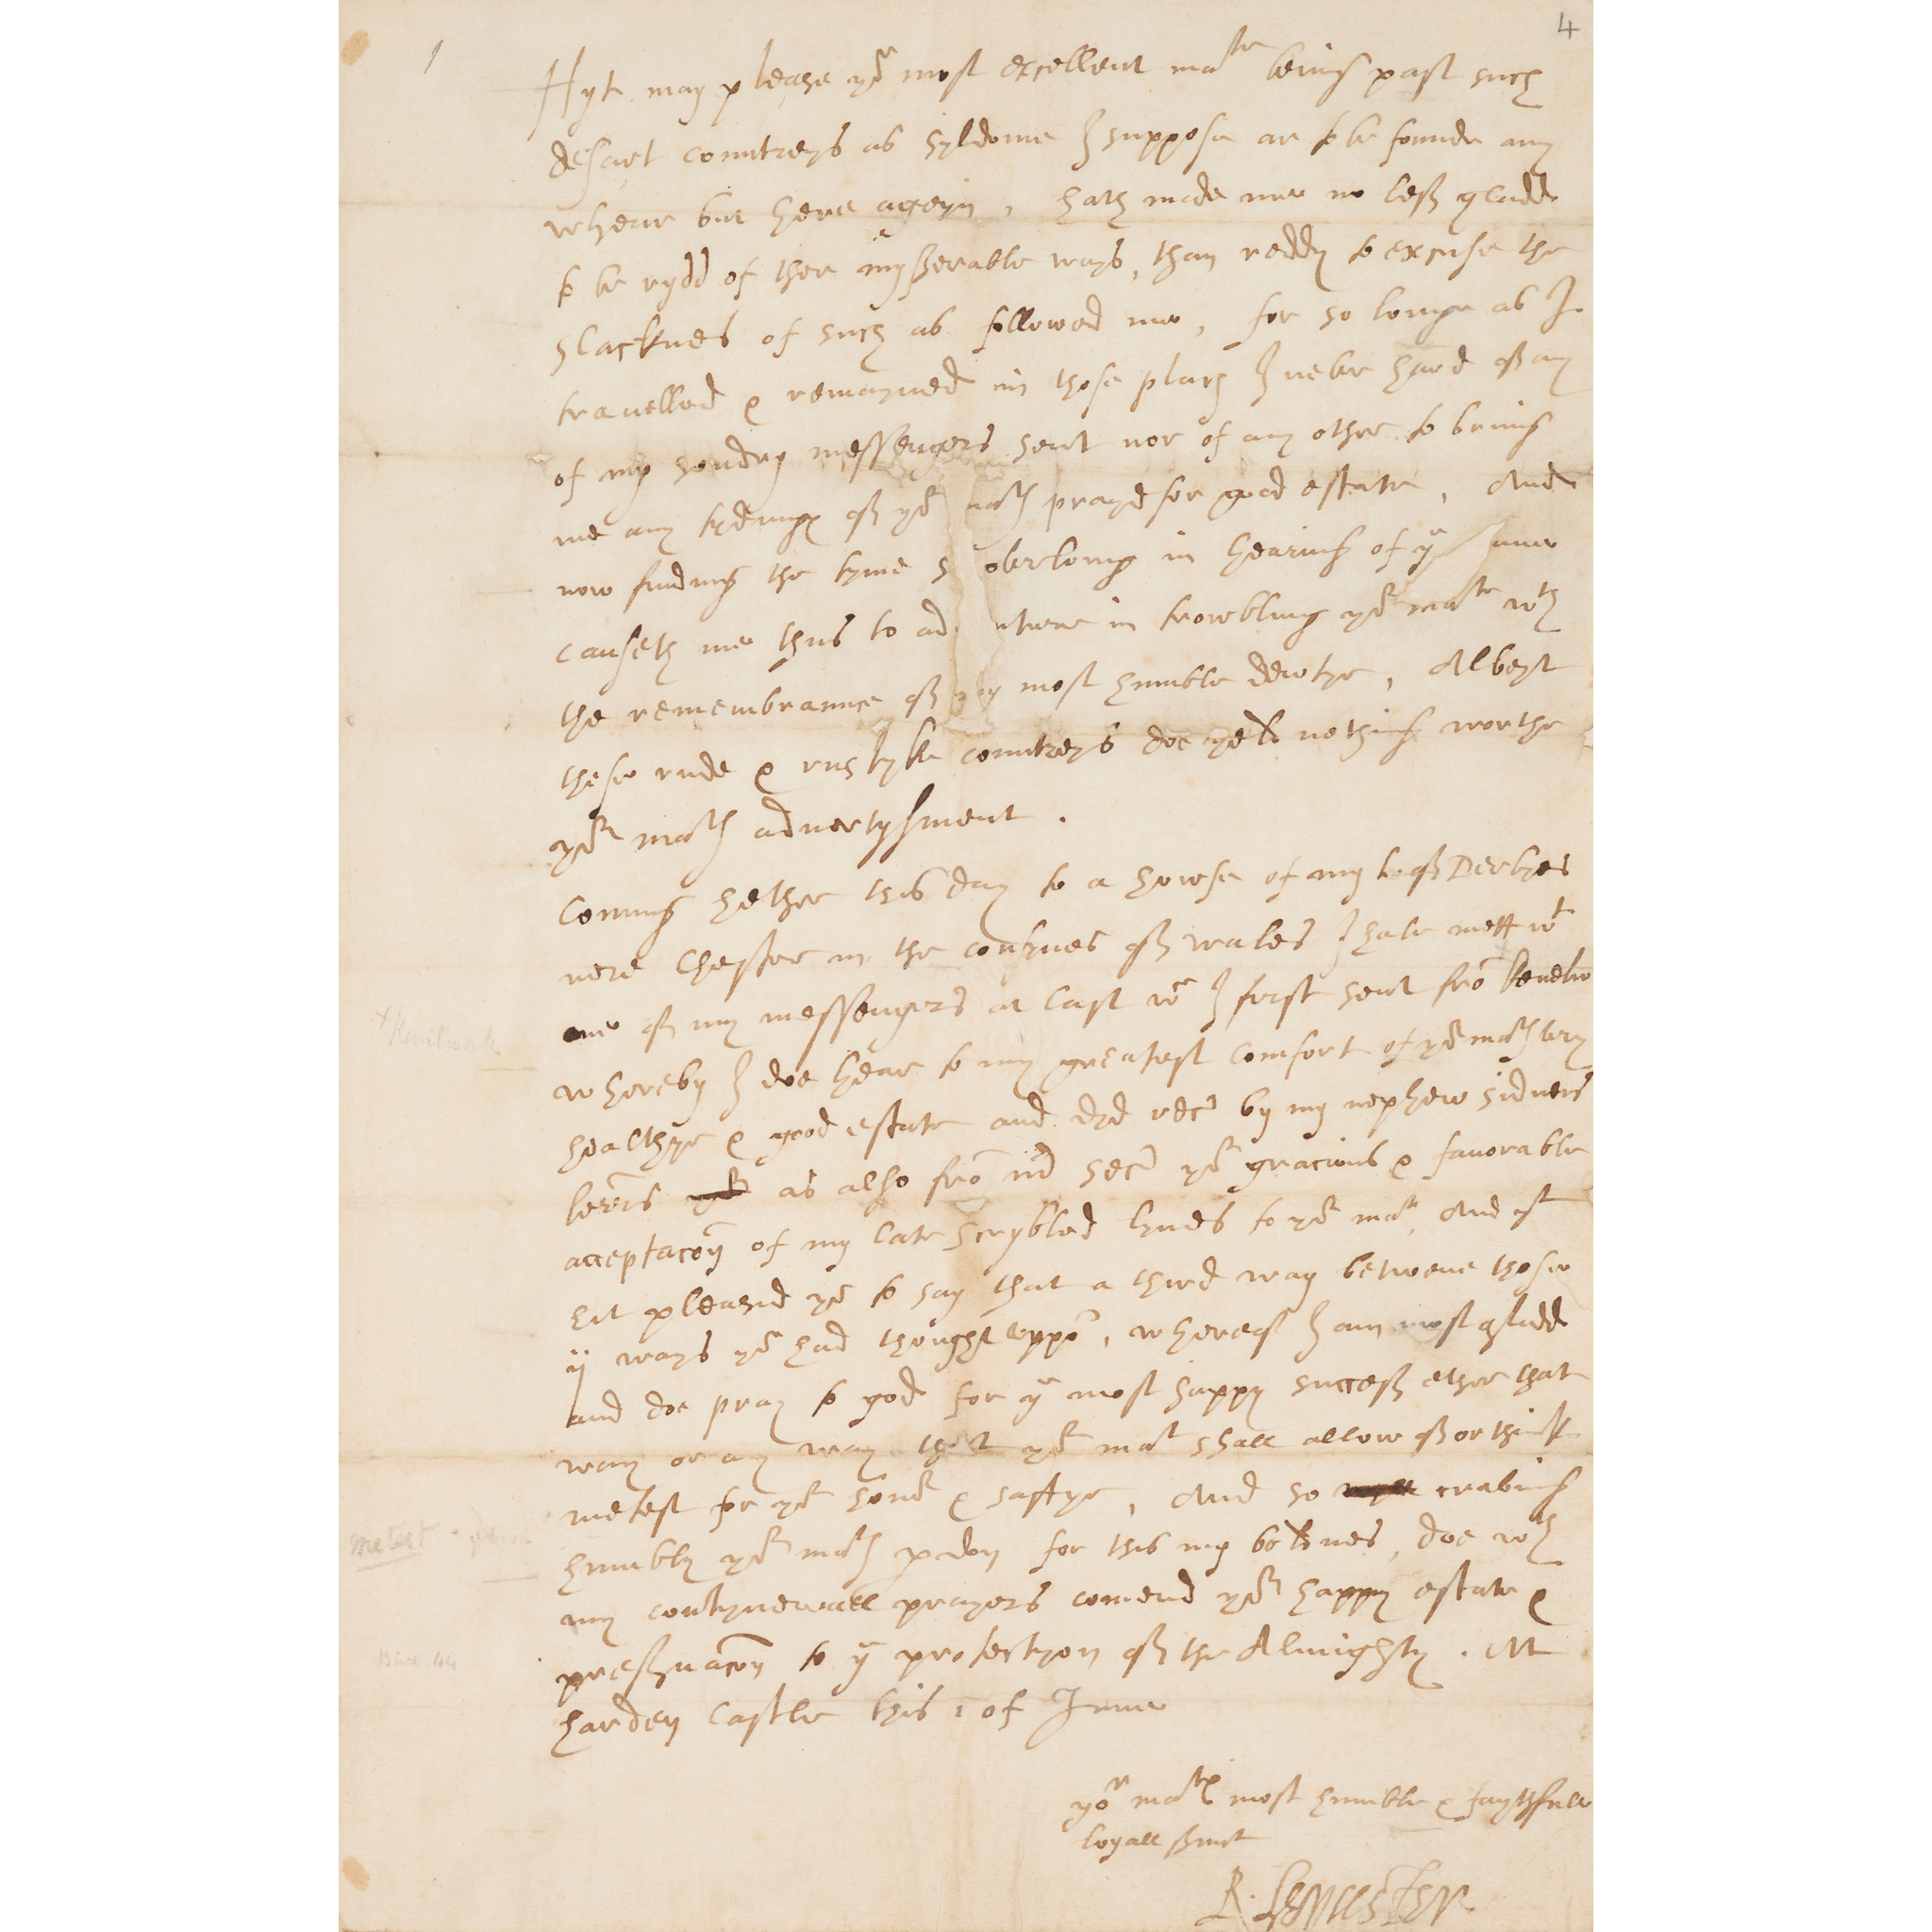 4
Hyt may please yor most excellent matie being past such
desart countreys as syldome I suppose ar to be founde any
whear but here ageyn, hath made me no less gladd
to be rydd of ther mysserable ways, than reddy to excuse the
slacknes of such as followed me, for so longe as I
travelled & remayned in those places I never hard of any
of my sondry messengers sent nor of any other to bring
me any tydings of yor mats prayd for good estate, And
now finding the tyme so overlong in hearing of ye same
causeth me thus to ad nture in trowbling yor matie wth
the remembraunce of my most humble dewtye, Albeyt
these rude & rustyke countreys doe yeld nothing worthe
yor mats advertysment.
Coming hether this day to a howse of my L. of Derbyes
nere Chester in the confynes of wales I have mett wt
one of my messengers at last wch I first sent fro
whereby I doe hear to my greatest comfort of yor mats very
healthye & good estate and dyd rec by my nephew sidneis
letters as also fro mr sec yor gracious & favorable
acceptacon of my late scrybled lynes to yor matie. And yt
hit pleasid you to say that a third way betwene those
ij ways you had thought uppo, whereof I am most gladd
and doe pray to god for ye most happy success ether that
way or any way that yor mat shall allow of or think
metest for yor honor & saftye, And so craving
humbly yor mats pdon for this my boldnes, doe wth
my contynewall prayers comend yor happy estate &
preservacon to ye protectyon of the Almighty. At
harden Castle this 1 of June
yor maties most humble & faythfull
loyall servnt
R. Leycester
Kenilworth
metest